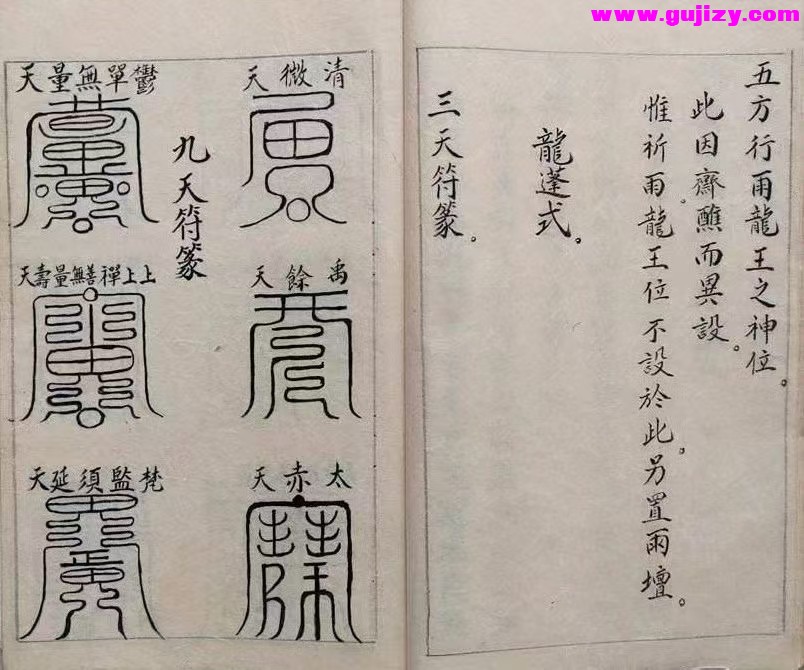 www.gujizy.com
五方行雨龍王之神位。
此因齋醮而異設。
惟祈雨龍王位不設於此。另置雨壇。
龍蓬式。
三天符篆。
清微天
禹餘天
太赤天
九天符篆
鬱單無量天
上上禪善無量壽天
梵監須延天